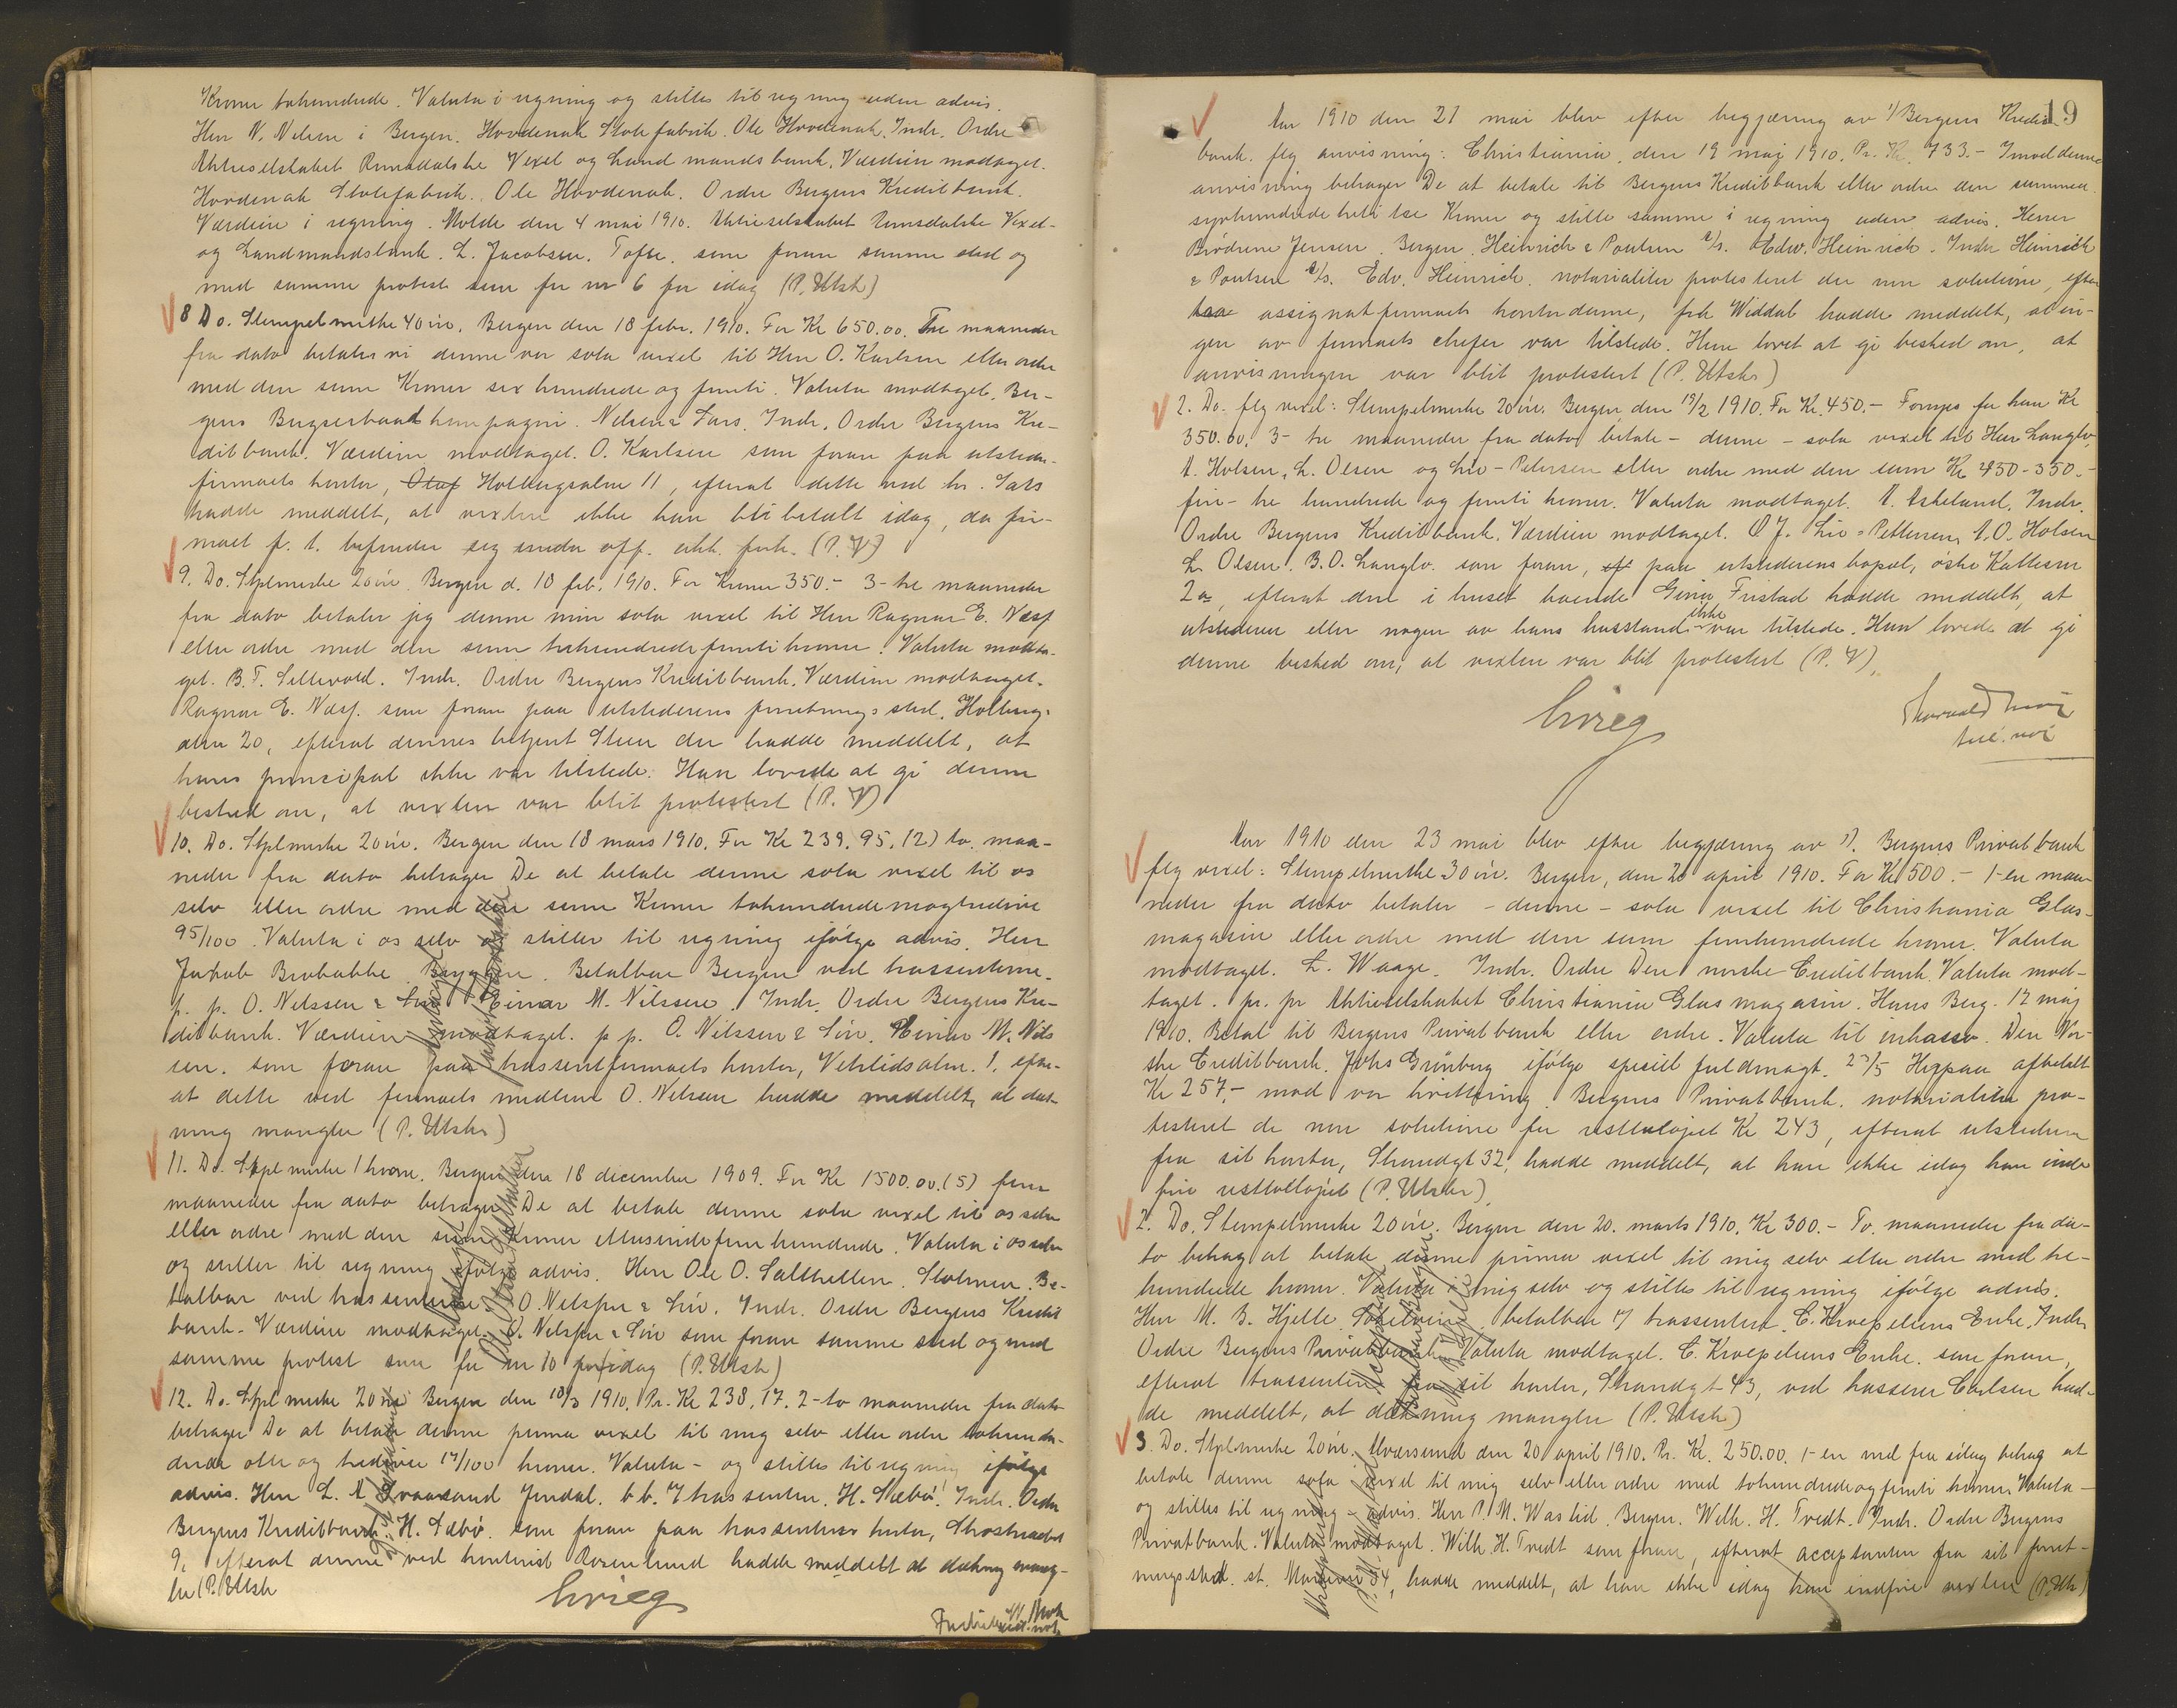 Kroner tohundrede. Valuta i regning og stilles til regning uden advis.
Herr N. Nilsen i Bergen. Hovdenak Stolefabrik. Ole Hovdenak. Indr. Ordre
Aktieselskabet Romsdalske Vexel og Landmandsbank. Værdien modtaget.
Hovdenak Stolefabrik. Ole Hovdenak. Ordre Bergens Kreditbank.
Værdien i regning. Molde den 4 mai 1910. Aktieselskabet Romsdalske Vexel-
og Landmandsbank. L. Jacobsen. Tofte. som foran samme sted og
med samme protest som for nr 6 for idag (P. Utsk)
8 Do. Stempelmerke 40 øre. Bergen den 18 febr. 1910. For Kr 650.00. Tre maaneder
fra dato betaler vi denne vor sola vexel til Herr O. Karlsen eller ordre
med den sum Kroner sex hundrede og femti. Valuta modtaget. Ber-
gens Bugserbaadkompagni. Nelson Lars. Indr. Ordre Bergens Kre-
ditbank. Værdien modtaget. O. Karlsen som foran paa utsteder-
firmaets kontor, Olaf Holbergsalm 11, efterat dette ved hr. Lars
hadde meddelt, at vexlen ikke kan bli betalt idag, da fir-
maet p. t. befinder sig under off. akk. forh. (P. V)
9. Do. Stplmerke 20 øre. Bergen d. 18 feb. 1910. For Kroner 350.- 3- tre maaneder
fra dato betaler jeg denne min sola vexel til Herr Ragnar E. Næsf
eller ordre med den sum trehundredefemti kroner. Valuta modta-
get. B. T. Sellevold. Indr. Ordre Bergens Kreditbank. Værdien modtaget.
Ragnar E. Næsf. som foran paa utstederens forretningssted, Holbergs-
alm 20, efterat dennes betjent Steen der hadde meddelt, at
hans principal ikke var tilstede. Han lovede at gi denne
besked om, at vexlen var blit protestert (P. V)
10. Do. Stplmerke 20 øre. Bergen den 18 mars 1910. For Kr 239.95. (2) to maa-
neder fra dato behager De at betale denne sola vexel til os
selv eller ordre med den sum Kroner tohundredeogtrediveni
95/100. Valuta i os selv og stilles til regning ifølge advis. Herr
Jakob Brobakke Bryggen. Betalbar Bergen ved trassenterne.
p. p. O. Nilssen & Søn Einar M. Nilssen. Indr. Ordre Bergens Kre-
ditbank. Værdien modtaget. p p. O. Nilssen & Søn. Einar M. Nils
sen. som foran paa trassentfirmaets kontor, Vetrlidsalm. 1. efter-
at dette ved firmaets medlem O. Nilsen hadde meddelt, at dæk-
ning mangler (P. Utskr)
11. Do. Stplmerke 1 krone. Bergen den 18 december 1909. For Kr 1500.00. (5) fem
maaneder fra dato behager De at betale denne sola vexel til os selv
eller ordre med den sum Kroner ettusindefemhundrede. Valuta i os selv
og stilles til regning ifølge advis. Herr Ole O. Salthellen. Stolmen. Be-
talbar ved trassenterne. O. Nilsfen & Søn. Indr. Ordre Bergens Kredit
bank. Værdien modtaget. O. Nilsfen & Søn som foran samme sted og med
samme protest som for nr 10 for idag (P. Utsk)
12. Do. Stplmerke 20 øre Bergen den 18/3 1910. Pr. Kr 238.17. 2-to maaneder fra dato
behager De at betale denne prima vexel til mig selv eller ordre tohundr-
drede otte og tredive 17/100 kroner. Valuta - og stilles til regning ifølge
advis. Herr L. A. Kvaasand Jondal. b.b. 7 trassenten. H. Sæbø. Indr. Ordre
Bergens Kreditbank. H. Sæbø. som foran paa trassentens kontor,
9, efterat denne ved kontorist Rosenlund hadde meddelt at dækning mang-
ler (P. Utsk
Krieg
19
Aar 1910 den 21 mai blev efter begjæring av 1/ Bergens Kredit-
bank. flg anvisning: Christiania, den 19 maj 1910. Pr. Kr. 733.- Imod denne
anvisning behager De at betale til Bergens Kreditbank eller ordre den summen
syvhundredetretitre Kroner og stille samme i regning uden advis. Herrer
Brødrene Jensen. Bergen. Heinrich & Poulsen A/s. Edw. Heinrich. Indr. Heinrich
& Poulsen A/s. Edv. Heinrich. notarialiter protesteret der non solutione, efter
assignatfirmaets kontordame, frk Widdal hadde meddelt, at in-
gen av firmaets chefer var tilstede. Hun lovet at gi besked om, at
anvisningen var blit protestert (P. Utskr)
2. Do. flg vexel: Stempelmerke 20 øre. Bergen, den 19/2 1910. For Kr. 450.- Fornyes for kun Kr
350.00. 3- tre maaneder fra dato betale - denne - sola vexel til Herr Langlo,
A. Holsen, L. Olsen og Liv-Petersen eller ordre med den sum Kr 450-350.-
fire- tre hundrede og femti kroner. Valuta modtaget. A. Askeland. Indr.
Ordre Bergens Kreditbank. Værdien modtaget. O J. Liv-Pettersen, A. O. Holsen
L. Olsen. B. O. Langlo. som foran, paa utstederens bopæl, østre Kattesm
2a, efterat den i huset boende Gina Fristad hadde meddelt, at
utstederen eller nogen av hans husstand ikke var tilstede. Hun lovede at gi
denne besked om, at vexlen var blit protestert (P. V).
Krieg
Aar 1910 den 23 mai blev efter begjæring av 1). Bergens Privatbank
flg vexel: Stempelmerke 30 øre. Bergen, den 20 april 1910. For Kr 500.- 1-en maa-
neder fra dato betaler - denne - sola vexel til Christiania Glas-
magasin eller ordre med den sum femhundrede kroner. Valuta
modtaget. L. Waage. Indr. Ordre Den norske Creditbank. Valuta mod-
taget. pr. pr Aktieselskabet Christiania Glasmagasin. Hans Berg. 12 maj
1910. Betal til Bergens Privatbank eller ordre. Valuta til inkasso. Den Nor-
ske Creditbank. Johs Grünberg ifølge speciel fuldmagt. 23/5 Herpaa afbetalt
Kr 257,- mod vor kvittering. Bergens Privatbank. notarialiter pro-
testeret de non solutione for restbeløpet Kr 243, efterat utstederen
fra sit kontor, Strandgt 32, hadde meddelt, at han ikke idag kan ind-
fri restbeløpet (P. Utskr)
2. Do. Stempelmerke 20 øre. Bergen den 20. marts 1910. Kr 300.- To. maaneder fra da-
to behag at betale denne prima vexel til mig selv eller ordre med tre-
hundrede kroner. Valuta i mig selv og stilles til regning ifølge advis.
Herr M. B. Hjelle. betalbar 7 trassenten. C. Kroepeliens Enke. Indr.
Ordre Bergens Privatbank. Valuta modtaget. C. Kroepeliens Enke. som foran,
efterat trassenten fra sit kontor, Strandgt 43, ved kasserer Carlsen had-
de meddelt, at dækning mangler (P. Utsk)
3. Do. Stplmerke 20 øre. den 20 april 1910. Pr. Kr. 250.00. 1-en md fra idag behag at
betale denne sola vexel til mig selv eller ordre med tohundredeogfemti kroner. Valuta -
og stilles til regning - advis. Herr P. M. Wastid. Bergen. Wilh. H. Tvedt. Indr. Ordre Bergens
Privatbank. Valuta modtaget. Wilh. H. Tvedt som foran, efterat acceptanten fra sit forret-
ningssted. st. 34, hadde meddelt, at han ikke idag kan indfri vexlen (P. Utsk)